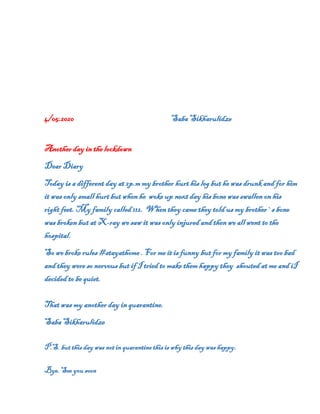 4/05.2020 Saba Sikharulidze
Another day in the lockdown
Dear Diary
Today is a different day at 2p.m my brother hurt his leg but he was drunk and for him
it was only small hurt but when he woke up next day his bone was swallen on his
right feet. My family called 112. When they came they told us my brother`s bone
was broken but at X-ray we saw it was only injured and then we all went to the
hospital.
So we broke rules #stayathome . For me it is funny but for my family it was too bad
and they were so nervous but if I tried to make them happy they shouted at me and iI
decided to be quiet.
That was my another day in quarantine.
Saba Sikharulidze
P.S. but this day was not in quarantine this is why this day was happy.
Bye. See you soon